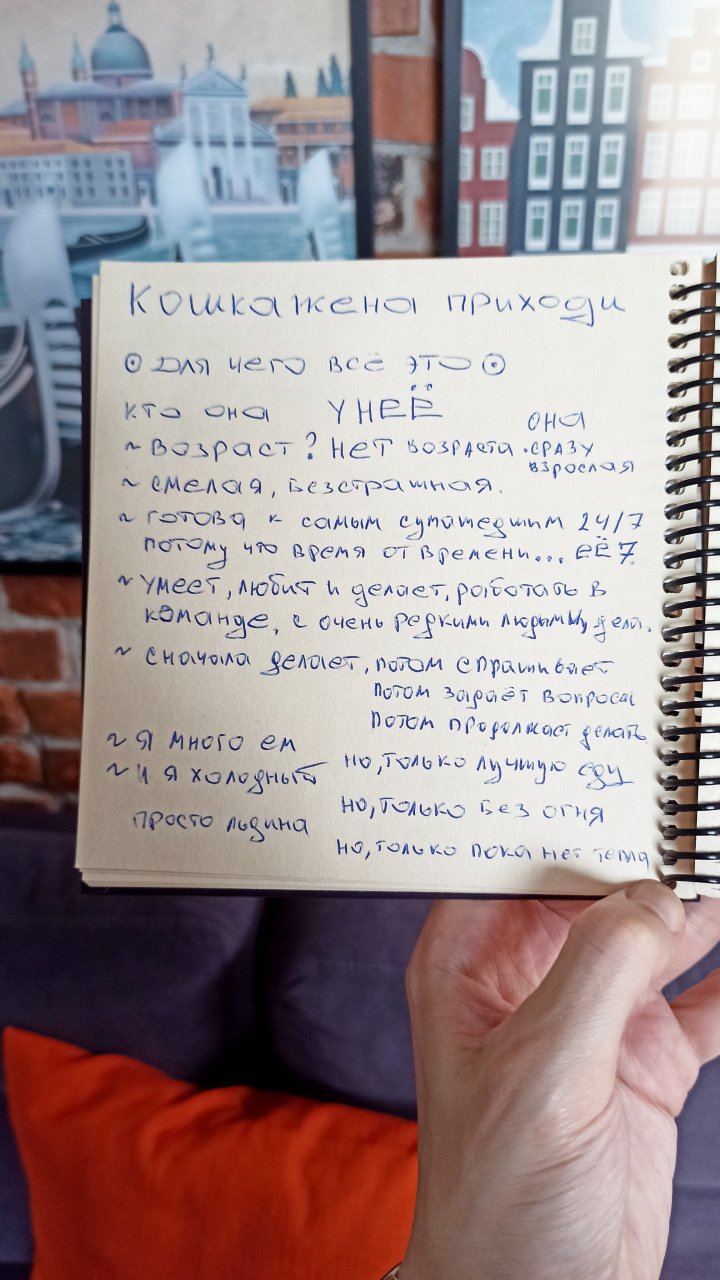 Кошкажена приходи
⊙ для чего всё это ⊙
кто она УНЕЁ
~ возраст? нет возраста · она сразу взрослая
~ смелая, безстрашная.
~ готова к самым сумашедшим 24/7
потому что время от времени... ЕЁ7
~ умеет, любит и делает, работать в
команде, с очень редкими людьми,
~ сначала делает, потом спрашивает
потом задаёт вопросы
потом продолжает делать
~ я много ем
но, только лучшую еду
~ и я холодный
но, только без огня
просто льдина
но, только пока нет тепла